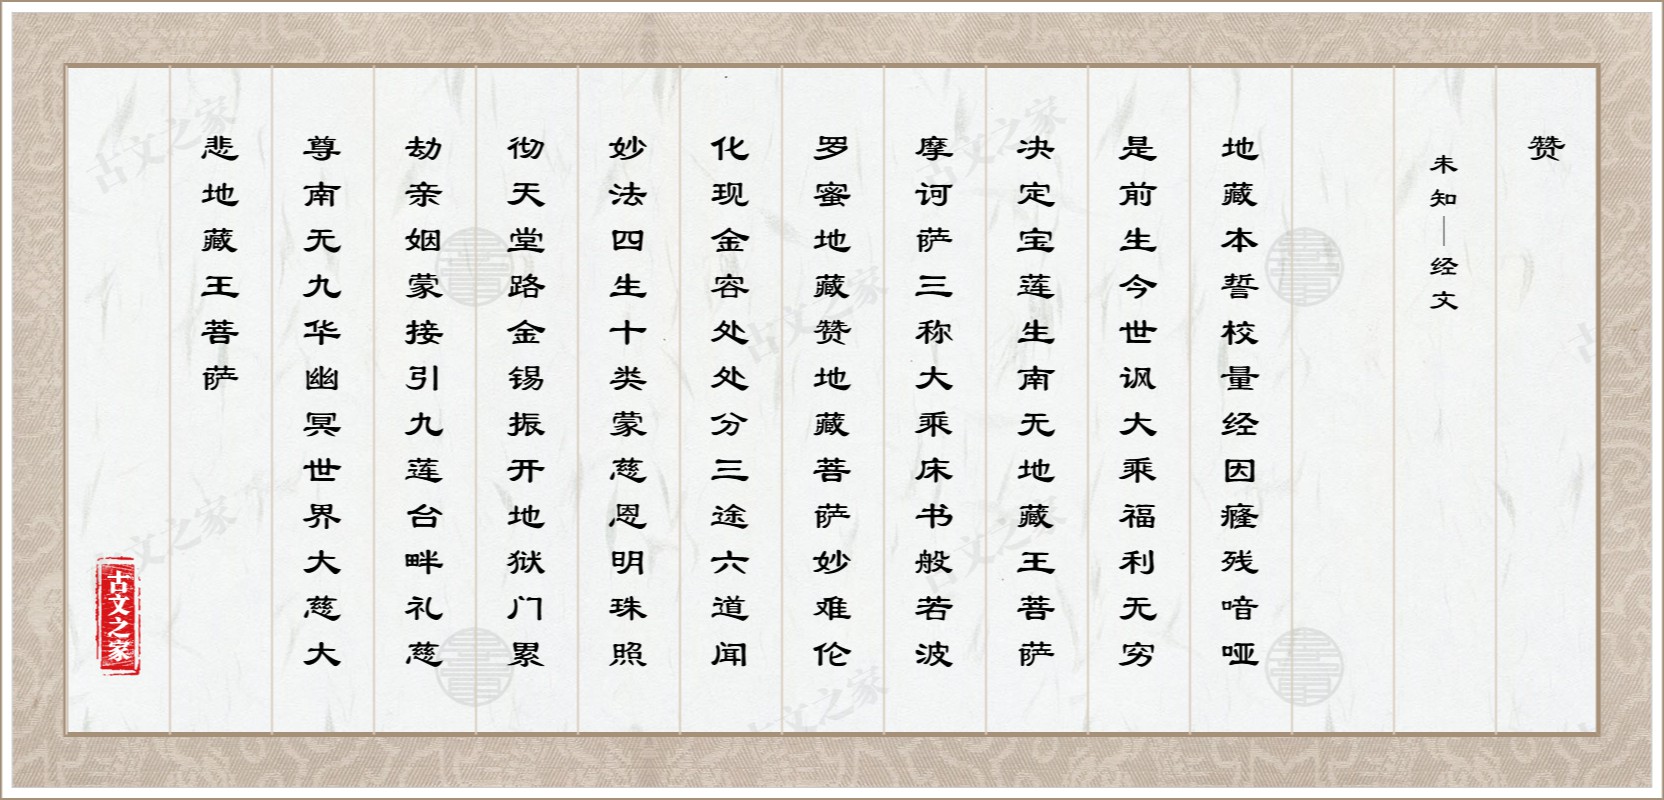 赞
未知—经文
地藏本誓校量经因癃残喑哑
是前生今世讽大乘福利无穷
决定宝莲生南无地藏王菩萨
摩诃萨三称大乘床书般若波
罗蜜地藏赞地藏菩萨妙难伦
化现金容处处分三途六道闻
妙法四生十类蒙慈恩明珠照
彻天堂路金锡振开地狱门累
劫亲姻蒙接引九莲台畔礼慈
尊南无九华幽冥世界大慈大
悲地藏王菩萨
古文之家